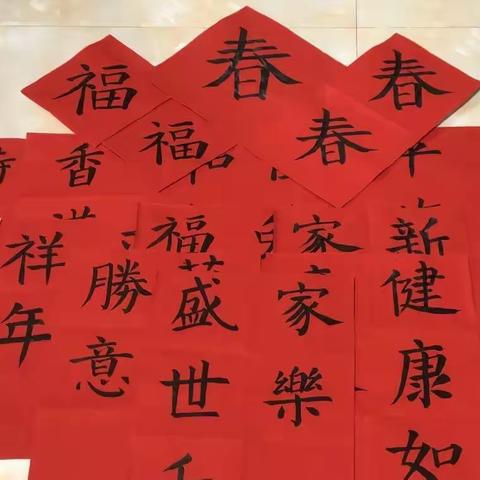 福
春
春
福
春
香
福
家
新
祥年
勝意
盛世
家樂
健康如